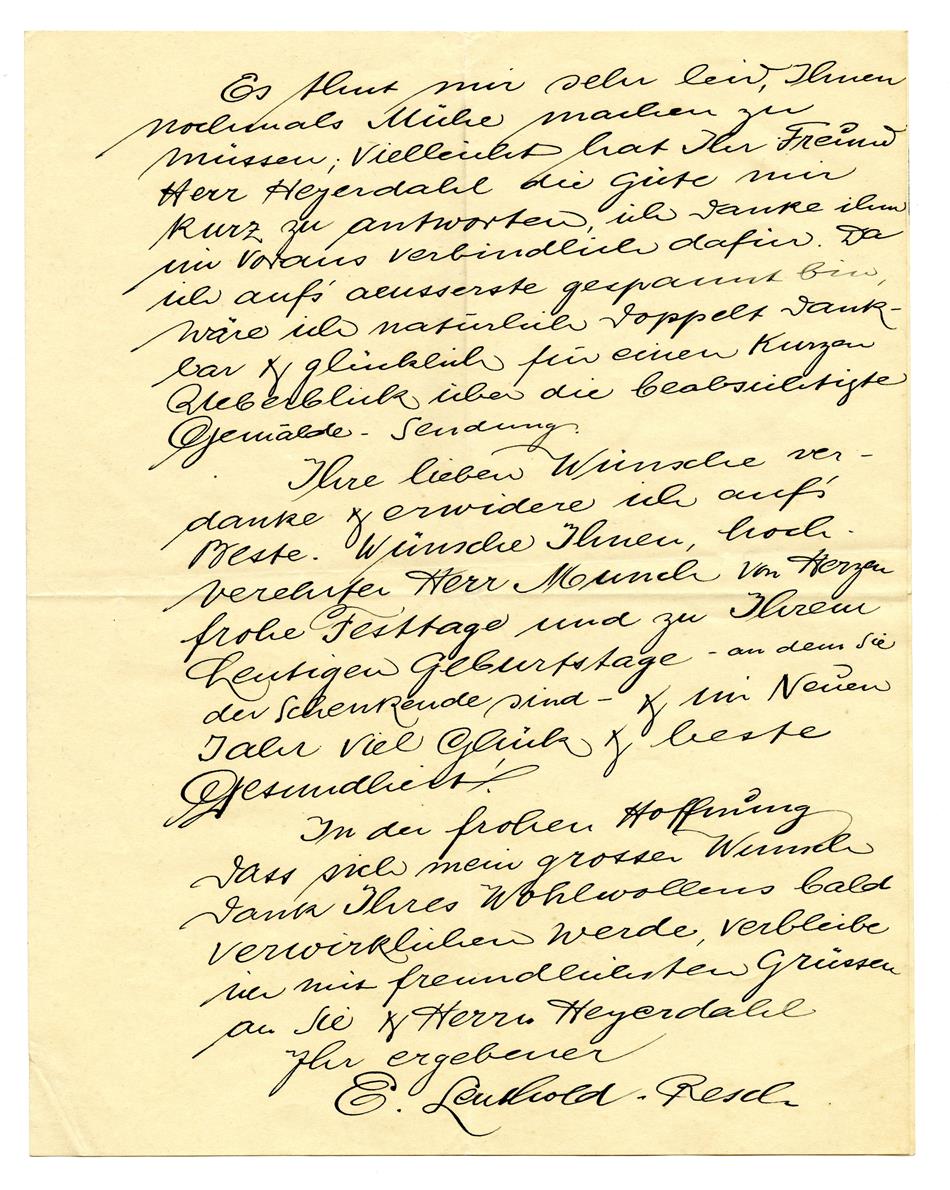 Es thut mir sehr leid, Ihnen
nochmals Mühe machen zu
müssen, vielleicht hat Ihr Freund
Herr Heyerdahl die Güte mir
kurz zu antworten, ich danke ihm
im Voraus verbindlich dafür. Da
ich auf's aeusserste gespannt bin,
wäre ich natürlich doppelt dank-
bar & glücklich für einen kurzen
Ueberblick über die beabsichtigte
Gemälde-Sendung.
Ihre lieben Wünsche ver-
danke & erwidere ich auf's
Beste. Wünsche Ihnen, hoch-
verehrter Herr Munch von Herzen
frohe Festtage und zu Ihrem
heutigen Geburtstage - an dem Sie
der Schenkende sind - & im Neuen
Jahr viel Glück & beste
Gesundheit!
In der frohen Hoffnung
dass sich mein grosser Wunsch
dank Ihres Wohlwollens bald
verwirklichen werde, verbleibe
ich mit freundlichsten Grüssen
an Sie & Herrn Heyerdahl
Ihr ergebener
E. Leuthold-Resch